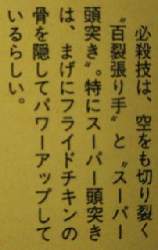 必殺技は、空をも切り裂く
〝百裂張り手〟と〝スーパー
頭突き〟。特にスーパー頭突き
は、まげにフライドチキンの
骨を隠してパワーアップして
いるらしい。